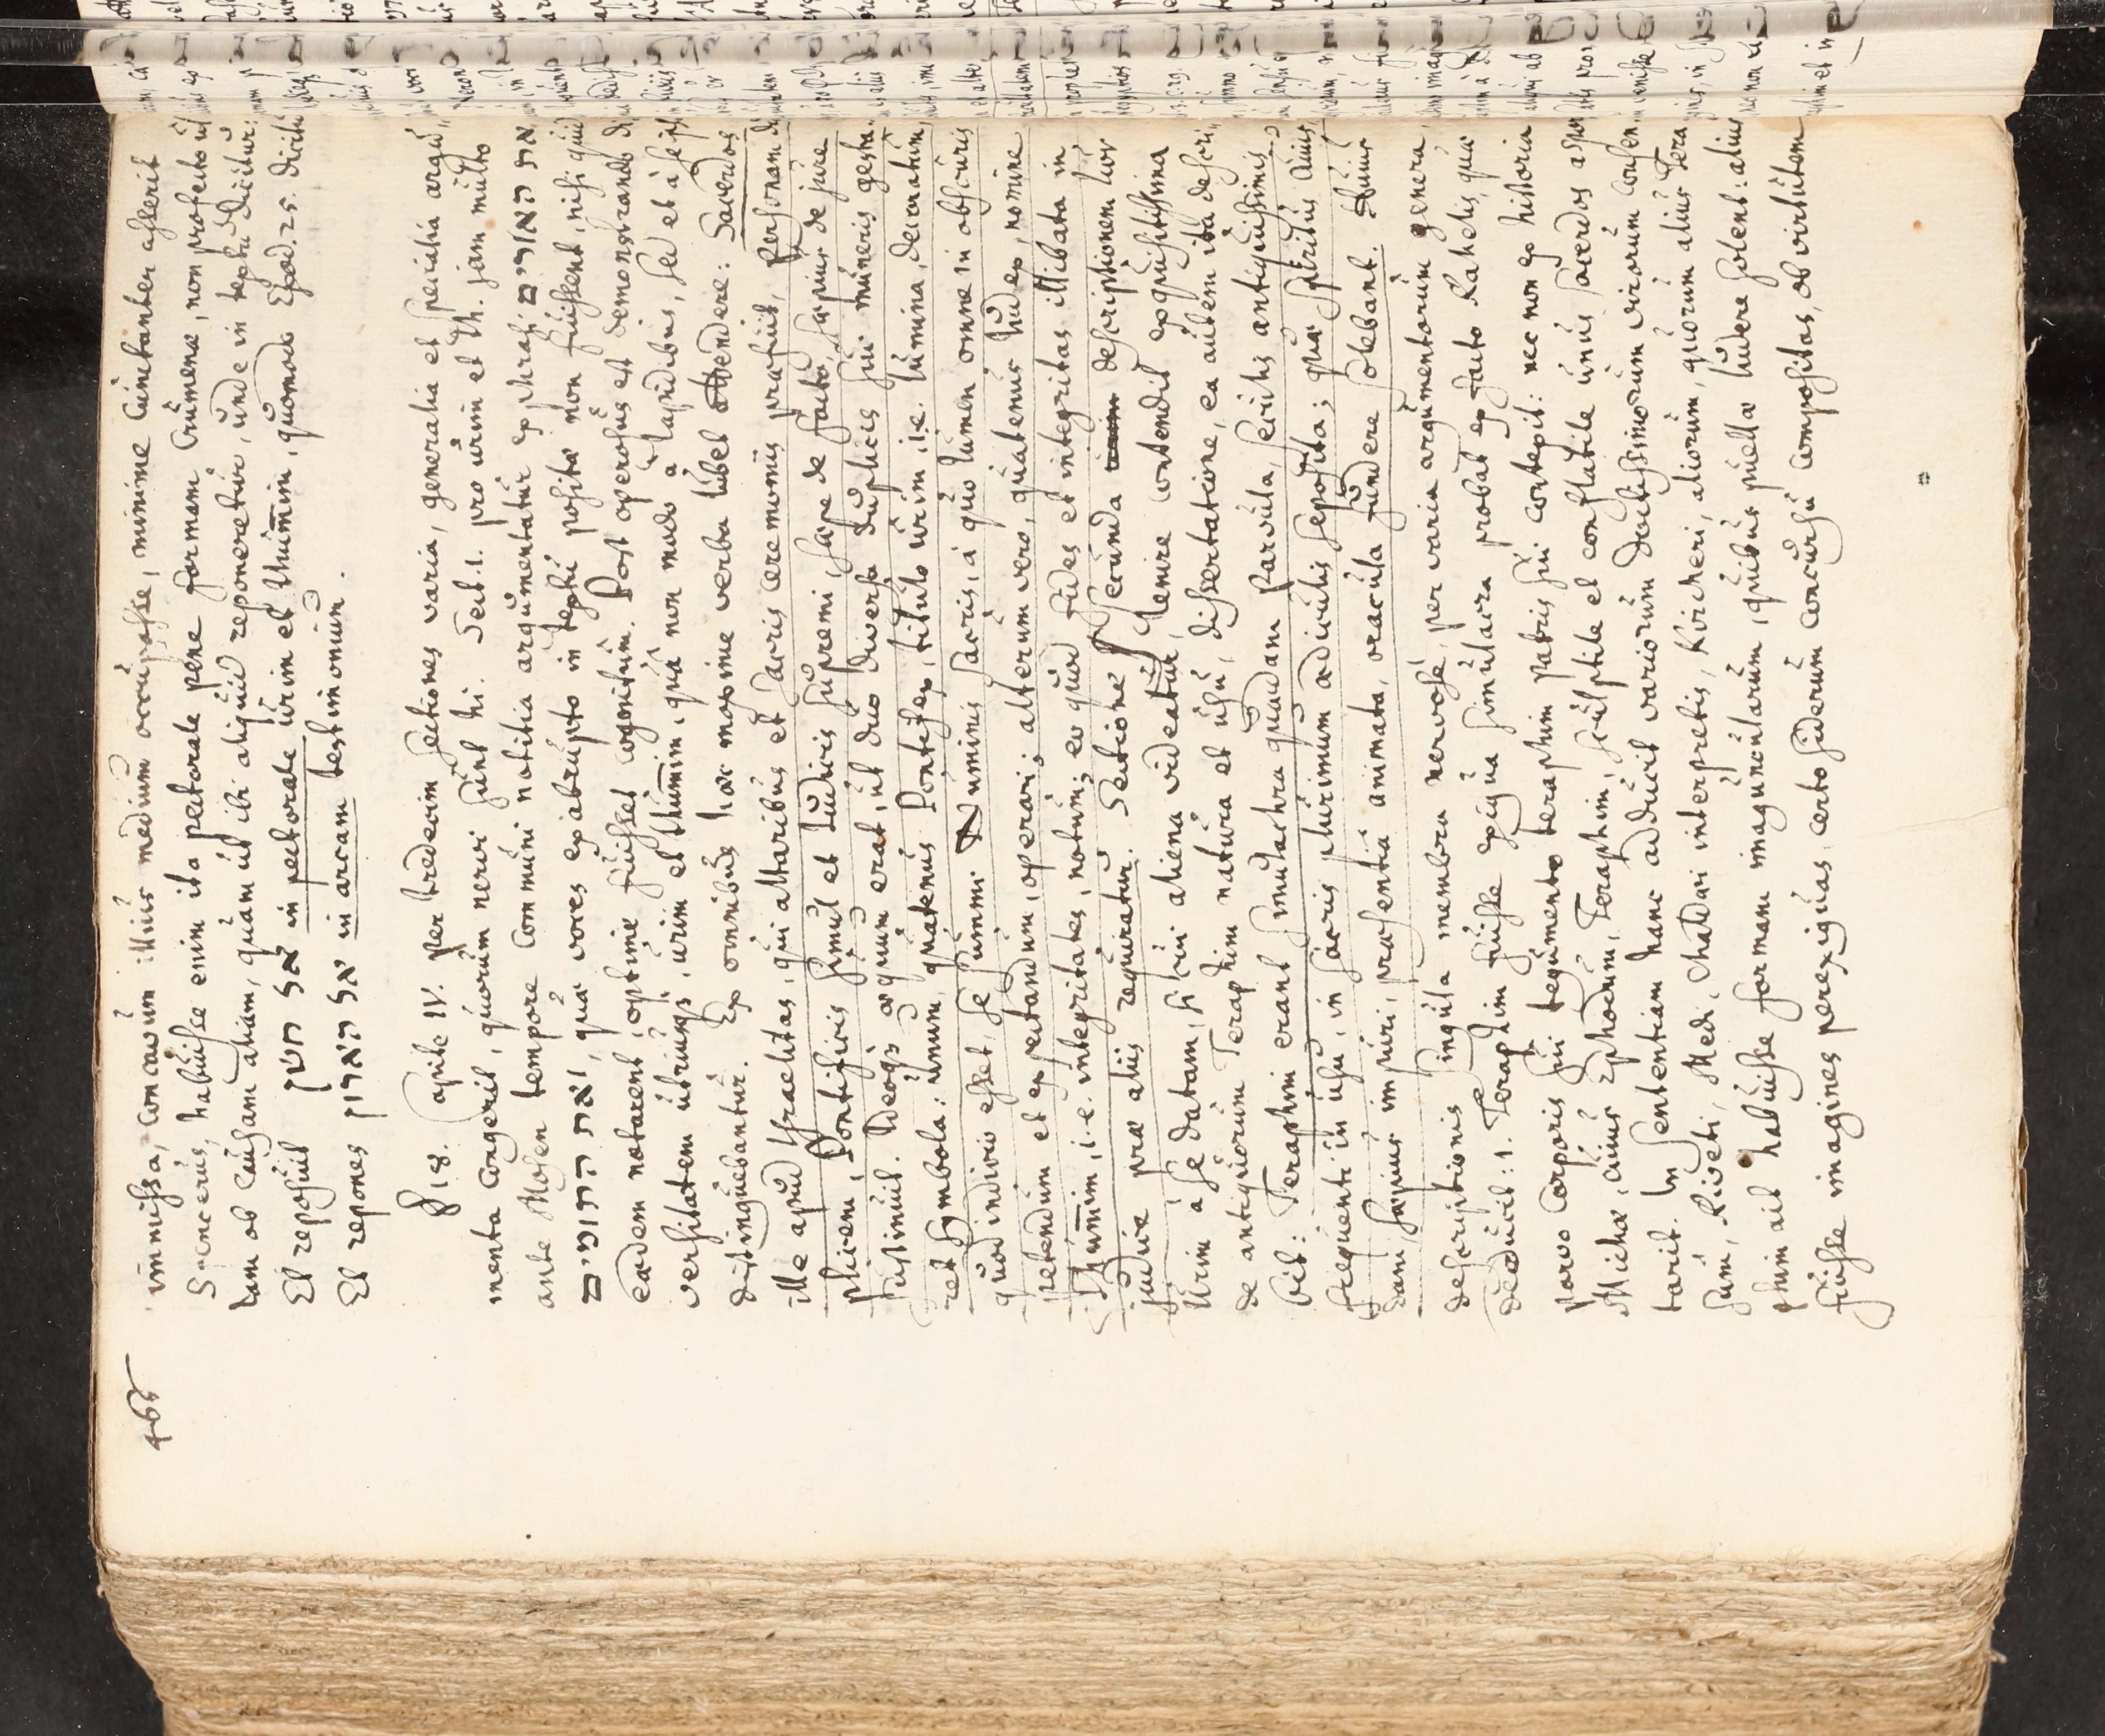 466
immissa, concavum illius medium occupasse, minime cunctanter asserit
Sancerus, habuisse enim ita pectorale pene formam crumenæ, non profecto ul
lam ob causam aliam, quam ut ibi aliquid reponeretur, unde in textu dicitur:
Et reposuit אל חשן in pectorale urim et thummim, quomodo Exod. 25. dicitur
Et repones אל הארון in arcam testimonium.
§ 18. Capite IV. per tredecim sectiones varia, generalia et specialia argu,,
menta congerit, quorum nervi sunt hi. Sect. 1. pro urim et th. jam multo
ante Mosen tempore communi notitia argumentatur ex phrasi: את האורים
ואת התומים, quæ voces ex abrupto in textu positæ non fuissent, nisi quid
eædem notarent, optime fuisset cognitum. Post operosus est demonstrando di
versitatem utriusq; urim et thumim, quâ non modo a lapidibus, sed et à se ipsis
distinguebantur. Ex omnibus hæc maxime verba lubet attendere: Sacerdos
ille apud Israelitas, qui altaribus et sacris ceremoniis præfuit, personam du
plicem, Pontificis simul et Iudicis supremi, sæpe de facto, sæpius de jure
sustinuit. Ideoq; æquum erat, ut duo diversa duplicis sui muneris gesta,
ret symbola: unum, quatenus Pontifex, titulo urim i.e. lumina, decoratum,
quod indicio esset, se summi Numinis sacris, a quo lumen omne in obscuris
petendum et expectandum, operari; alterum vero, quatenus Iudex, nomine
Thummim, i.e. integritates, notum; eo quod fides et integritas illibata in
judice præ aliis requiratur. Sectione secunda descriptionem τῶν
Urim à se datam, si cui aliena videatur, lenire contendit exquisitissima
de antiquorum Teraphim natura et usu, dissertatione, ea autem ita descri,,
bit: Teraphim erant simulachra quædam parvula, seculis antiquissimis
frequenti in usu, in sacris plurimum ædiculis seposita; quæ Spiritus cuius,
dam sæpius impuri, præsentiâ animata, oracula fundere solebant. Huius
descriptionis singula membra nervose, per varia argumentorum genera,
deducit: 1. Teraphim fuisse exigua simulacra probat ex facto Rahelis, quæ
parvo corporis sui tegumento teraphim patris sui contexit: nec non ex historia
Michæ, cuius Ephodum, Teraphim, sculptile et conflatile unus sacerdos aspor
tarit. In sententiam hanc adducit variorum doctissimorum virorum consen
sum, Riveti, Medi, Chaldæi interpretis, Kircheri, aliorum, quorum alius Tera
phim ait habuisse formam imaguncularum, quibus puellæ ludere solent: alius
fuisse imagines perexiguas, certo siderum concursu compositas, ob virtutem